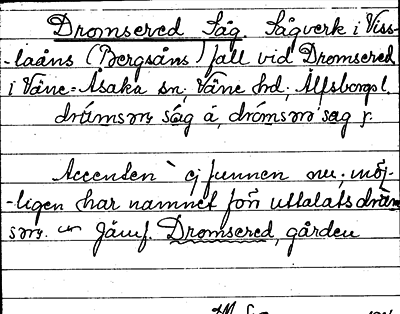 Dromsered Såg. Sågverk i Viss-
-laåns (Bergsåns) fall vid Dromsered
i Väne-Åsaka sn, Väne hd, Älfsborgs l.
såg å,
Accenten ` ej funnen nu; möj-
-ligen har namnet förr uttalats
Jämf. Dromsered, gården